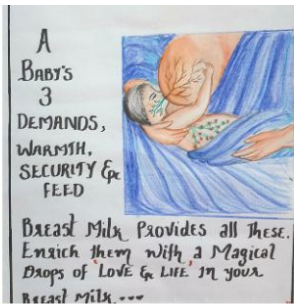 A
BABY'S
3
DEMANDS,
WARMTH,
SECURITY &
FEED
Breast Milk Provides all These.
Enrich them with a Magical
Drops of LOVE & LIFE in your
Breast Milk...